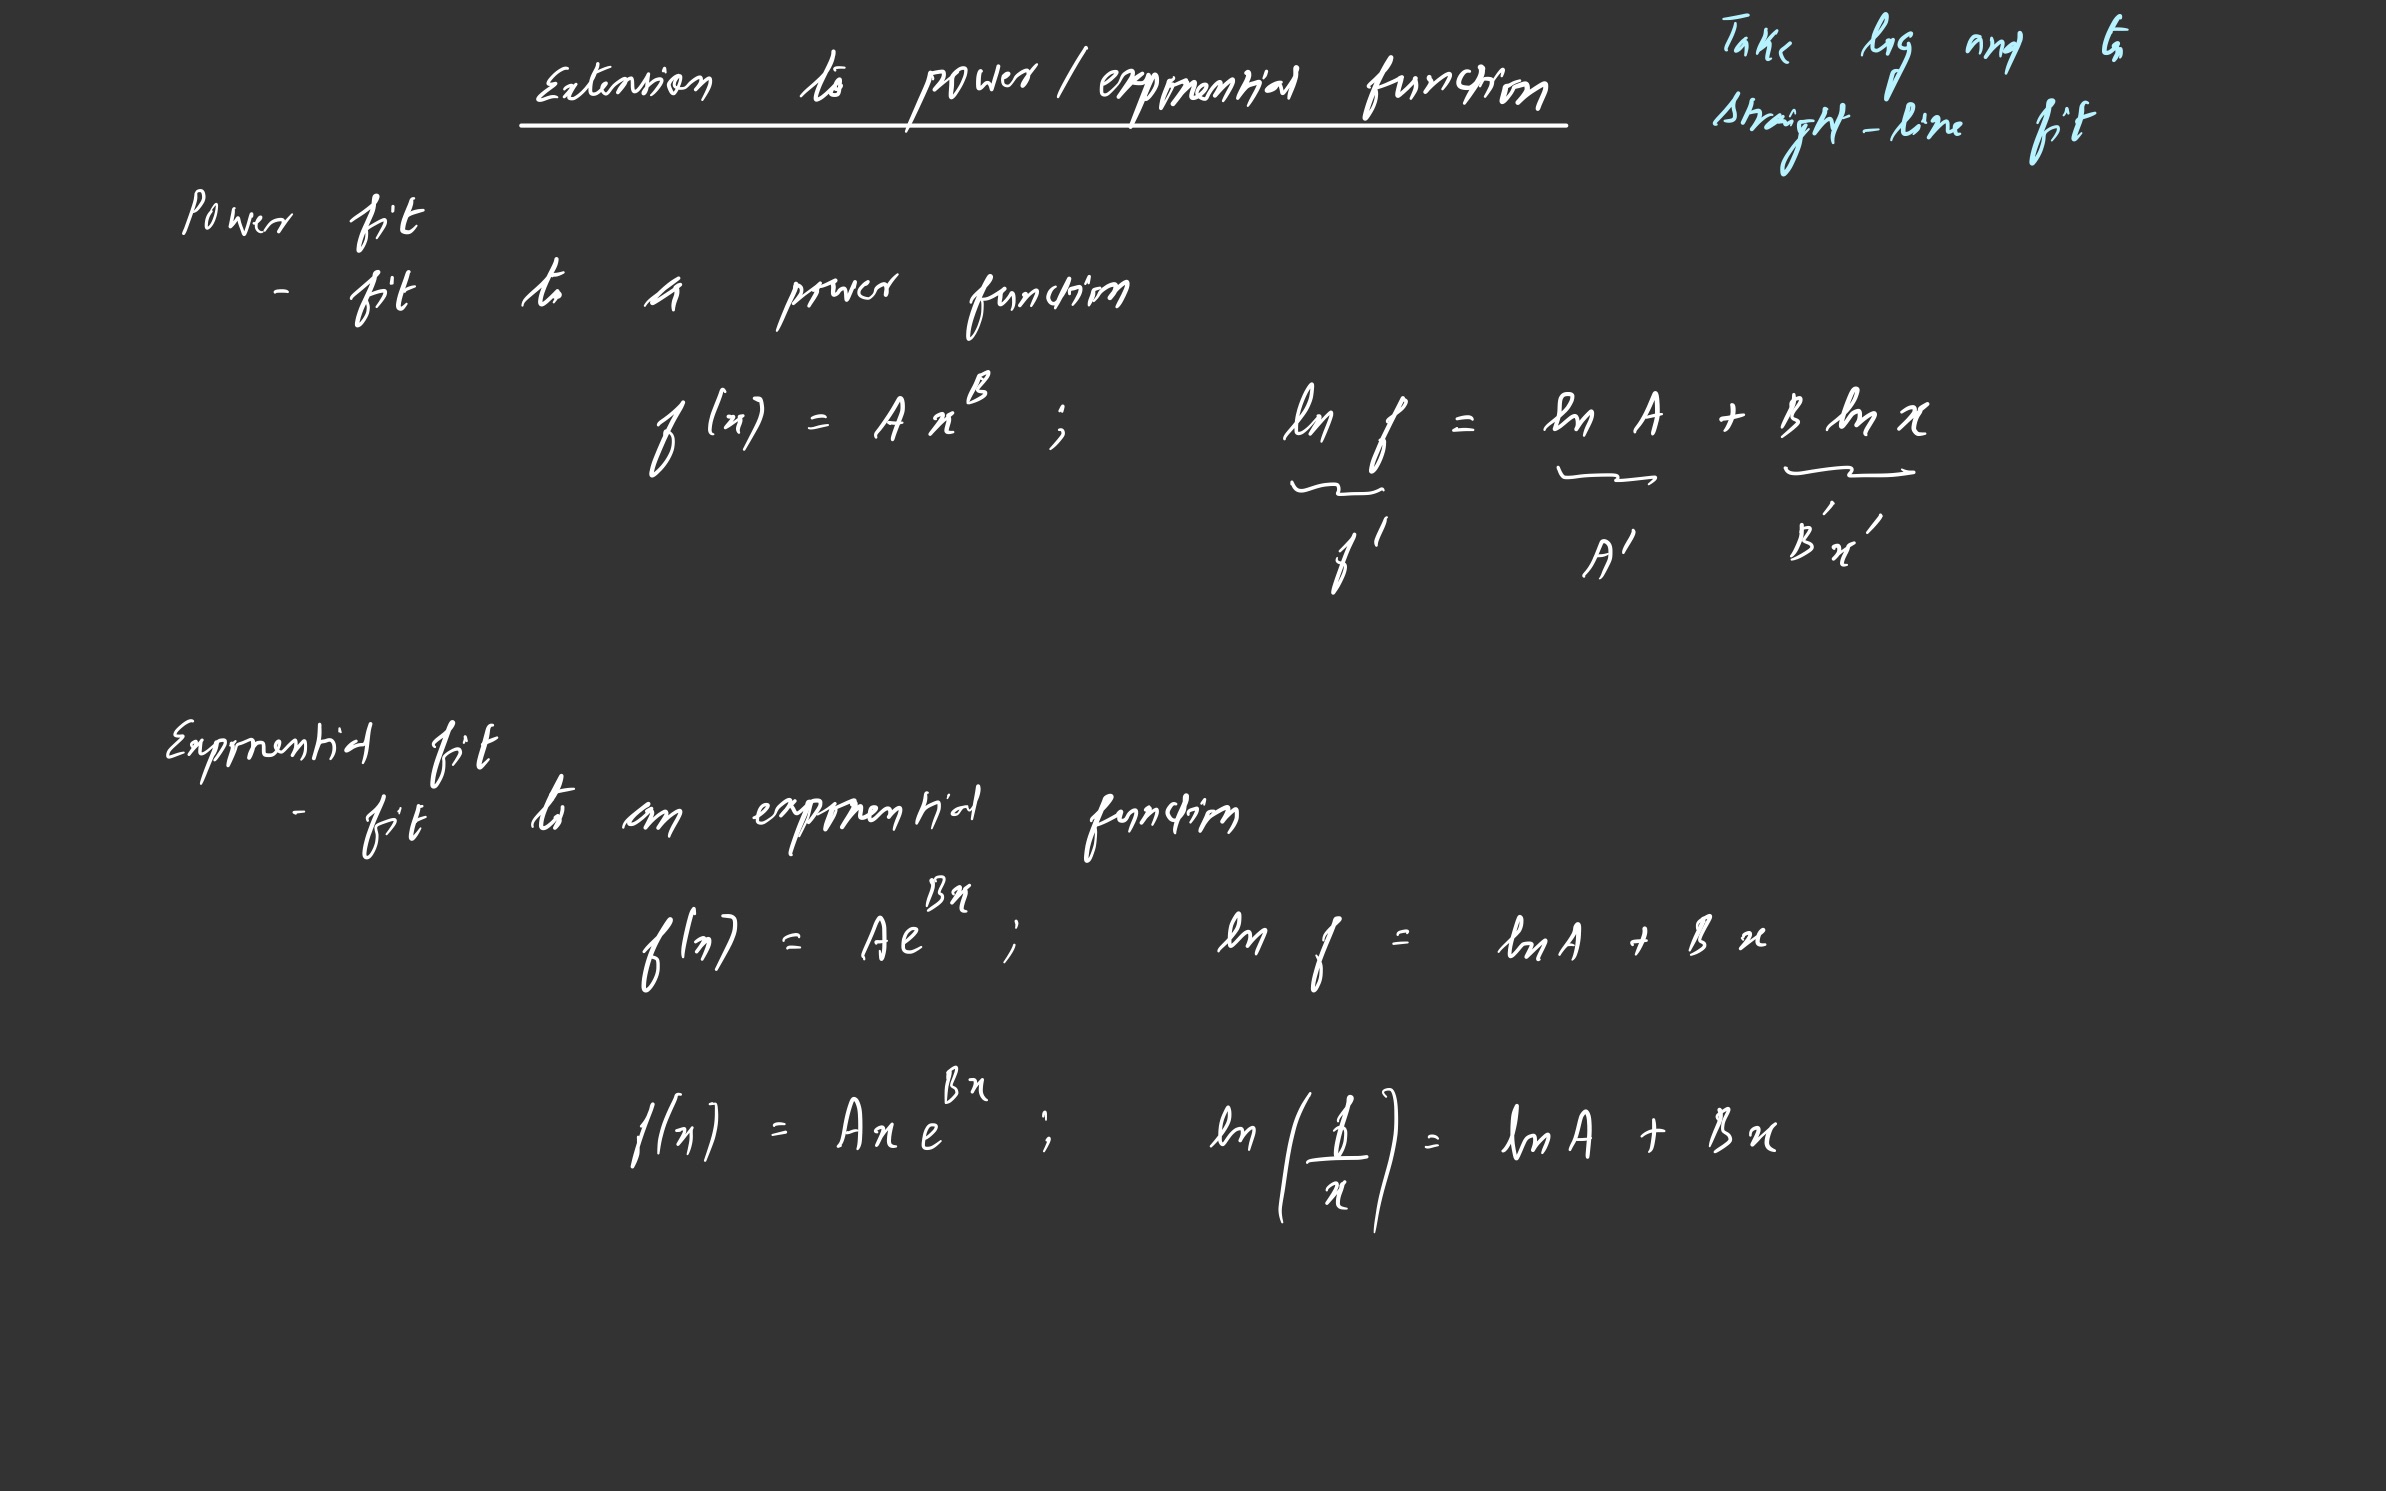 Extension to power / exponential function
Take log and to
straight-line fit
Power fit
- fit to a power function
f(x) = A x^B ; ln f = ln A + B ln x
f' A' B'x'
Exponential fit
- fit to an exponential function
f(x) = A e^{Bx} ; ln f = ln A + B x
f(x) = A x e^{Bx} ; ln(f/x) = ln A + B x